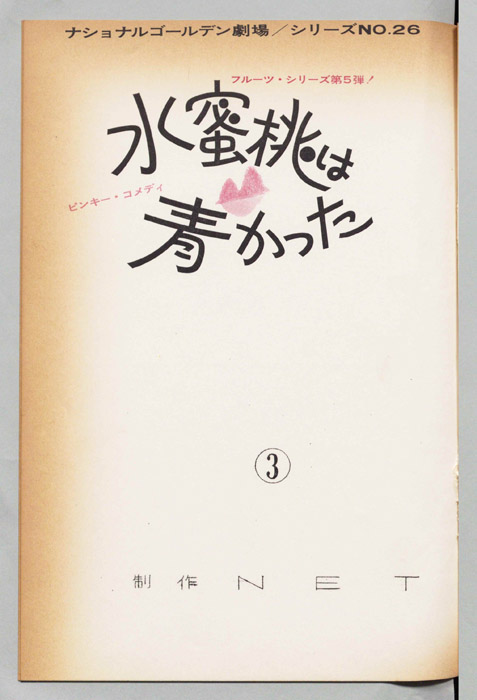 ナショナルゴールデン劇場／シリーズNO.26
フルーツ・シリーズ第5弾！
水蜜桃は
ピンキー・コメディ
青かった
③
制作 NET